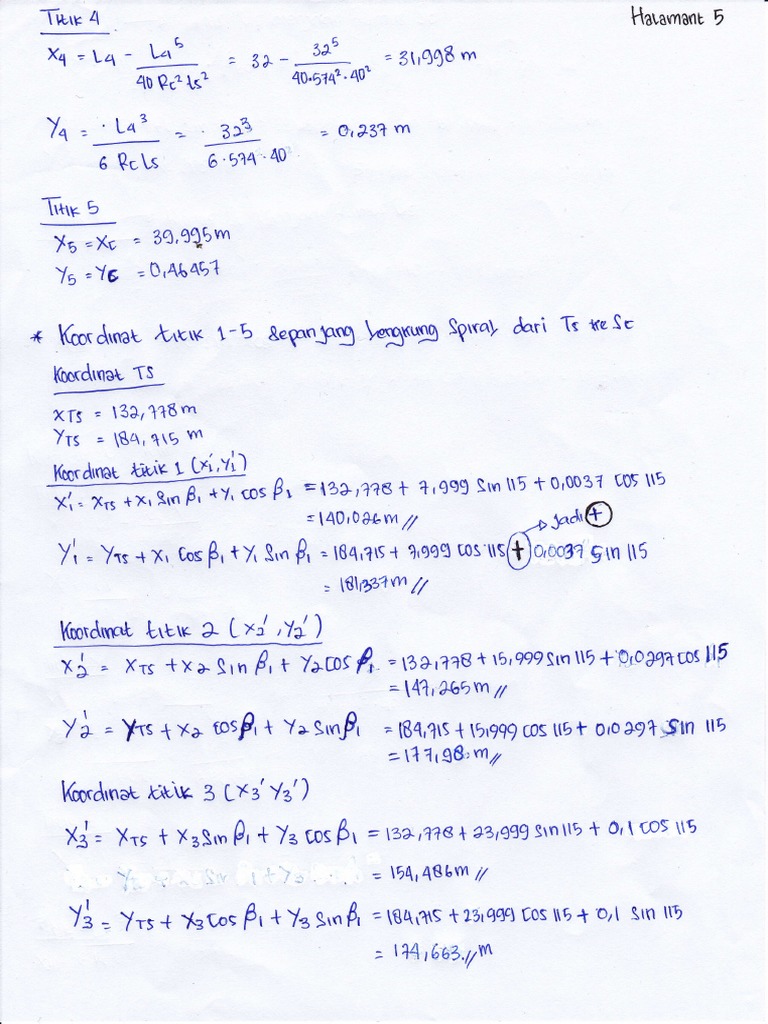 Titik 4
Halaman 5
X4 = L4 - L4^5 / 40 Rc² Ls² = 32 - 32^5 / 40·574²·40² = 31,998 m
Y4 = L4³ / 6 Rc Ls = 32³ / 6·574·40 = 0,237 m
Titik 5
X5 = Xc = 39,995 m
Y5 = Yc = 0,46457
* Koordinat titik 1-5 sepanjang Lengkung Spiral dari Ts ke Sc
Koordinat TS
XTS = 132,778 m
YTS = 184,715 m
Koordinat titik 1 (X1', Y1')
X1' = XTS + X1 Sin β1 + Y1 cos β1 = 132,778 + 7,999 Sin 115 + 0,0037 cos 115
= 140,026 m //
Jadi +
Y1' = YTS + X1 Cos β1 + Y1 Sin β1 = 184,715 + 7,999 cos 115 + 0,0037 Sin 115
= 181,337 m //
Koordinat titik 2 (X2', Y2')
X2' = XTS + X2 Sin β1 + Y2 cos β1 = 132,778 + 15,999 Sin 115 + 0,0297 cos 115
= 147,265 m //
Y2' = YTS + X2 cos β1 + Y2 Sin β1 = 184,715 + 15,999 cos 115 + 0,0297 Sin 115
= 177,98 m //
Koordinat titik 3 (X3' Y3')
X3' = XTS + X3 Sin β1 + Y3 cos β1 = 132,778 + 23,999 sin 115 + 0,1 cos 115
= 154,486 m //
Y3' = YTS + X3 Cos β1 + Y3 Sin β1 = 184,715 + 23,999 cos 115 + 0,1 sin 115
= 174,663 // m